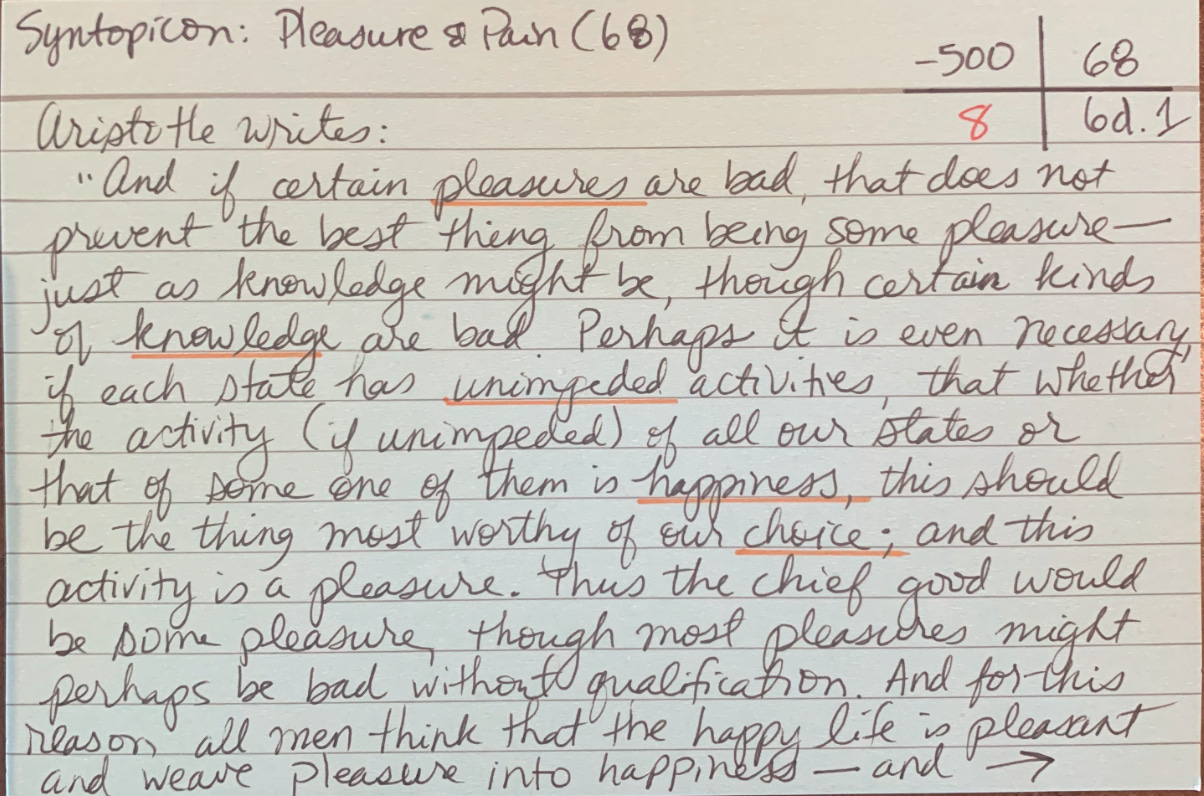 Syntopicon: Pleasure & Pain (68)
-500 68
8 6d.1
Aristotle writes:
"And if certain pleasures are bad, that does not
prevent the best thing from being some pleasure—
just as knowledge might be, though certain kinds
of knowledge are bad. Perhaps it is even necessary,
if each state has unimpeded activities, that whether
the activity (if unimpeded) of all our states or
that of some one of them is happiness, this should
be the thing most worthy of our choice; and this
activity is a pleasure. Thus the chief good would
be some pleasure, though most pleasures might
perhaps be bad without qualification. And for this
reason all men think that the happy life is pleasant
and weave pleasure into happiness — and →